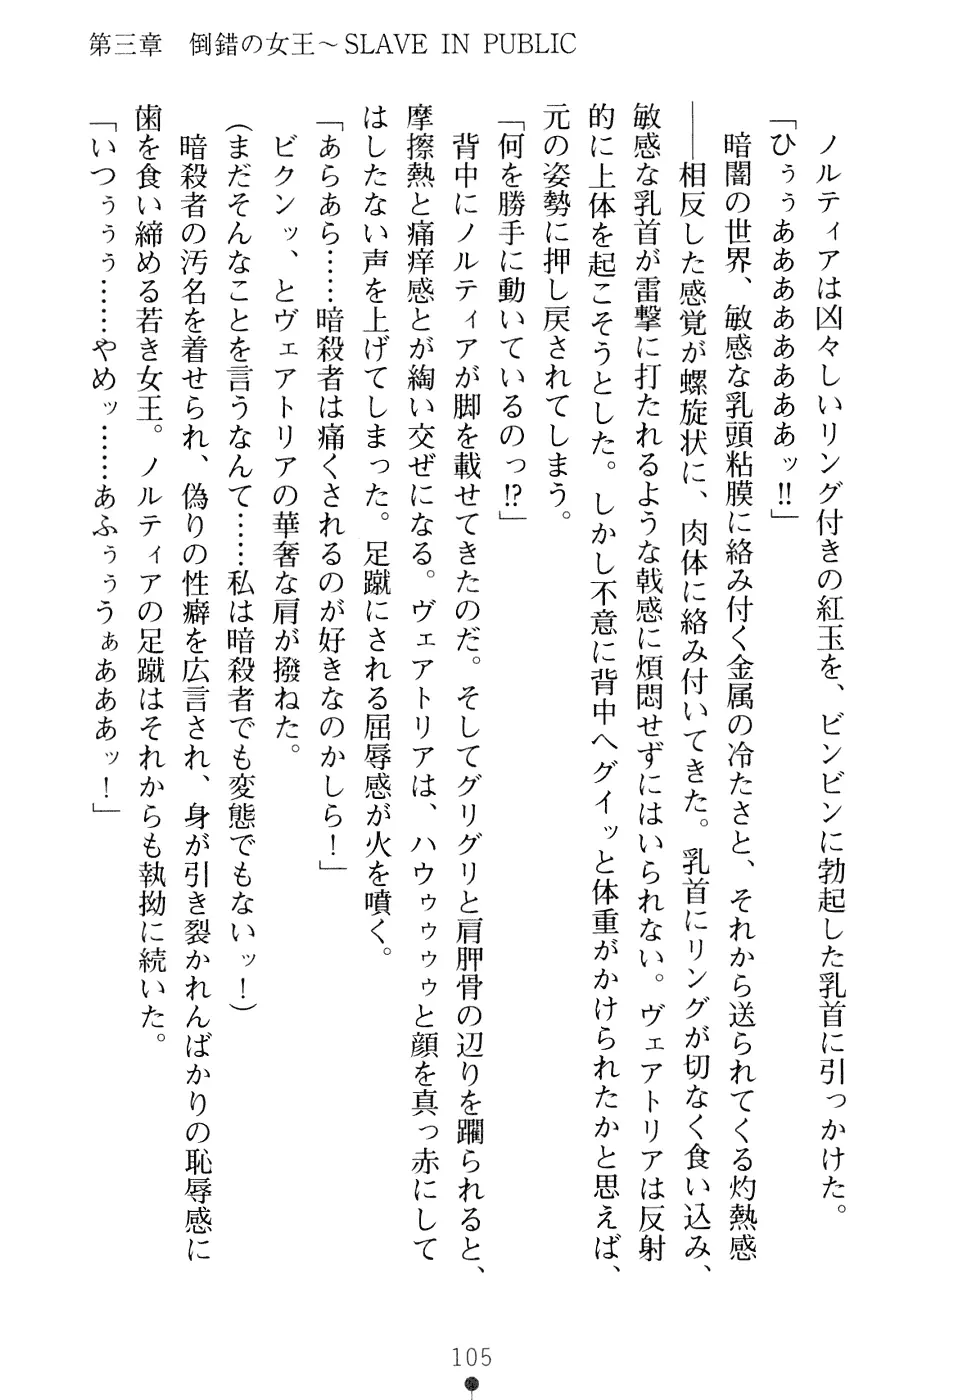 第三章　倒錯の女王～SLAVE IN PUBLIC
ノルティアは凶々しいリング付きの紅玉を、ビンビンに勃起した乳首に引っかけた。
「ひぅぅあああああああぁッ‼」
暗闇の世界、敏感な乳頭粘膜に絡み付く金属の冷たさと、それから送られてくる灼熱感
――相反した感覚が螺旋状に、肉体に絡み付いてきた。乳首にリングが切なく食い込み、
敏感な乳首が雷撃に打たれるような戟感に煩悶せずにはいられない。ヴェアトリアは反射
的に上体を起こそうとした。しかし不意に背中へグイッと体重がかけられたかと思えば、
元の姿勢に押し戻されてしまう。
「何を勝手に動いているのっ⁉」
背中にノルティアが脚を載せてきたのだ。そしてグリグリと肩胛骨の辺りを躙られると、
摩擦熱と痛痒感とが綯い交ぜになる。ヴェアトリアは、ハウゥゥゥと顔を真っ赤にして
はしたない声を上げてしまった。足蹴にされる屈辱感が火を噴く。
「あらあら……暗殺者は痛くされるのが好きなのかしら！」
ビクンッ、とヴェアトリアの華奢な肩が撥ねた。
（まだそんなことを言うなんて……私は暗殺者でも変態でもないッ！）
暗殺者の汚名を着せられ、偽りの性癖を広言され、身が引き裂かれんばかりの恥辱感に
歯を食い締める若き女王。ノルティアの足蹴はそれからも執拗に続いた。
「いつぅぅぅ……やめッ……あふぅぅうぁああぁッ！」
105